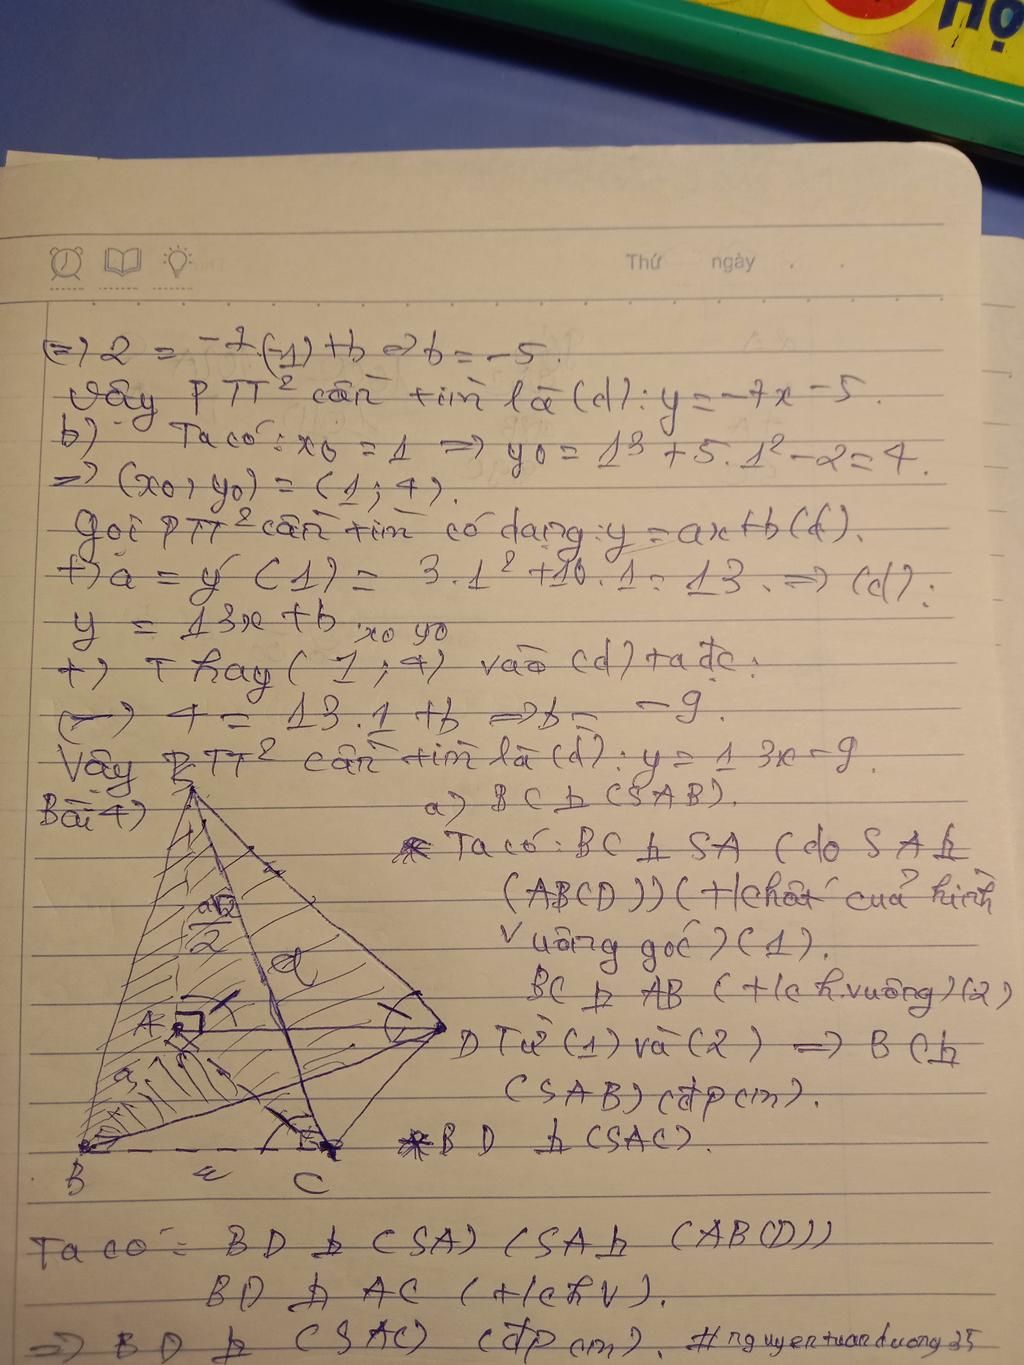 HỌ
Thứ ngày
(=) 2 = -7.(-1) + b => b = -5.
Vậy PTT² cần tìm là (d): y = -7x - 5.
b) Ta có: x0 = 1 => y0 = 1³ + 5.1² - 2 = 4.
=> (x0, y0) = (1; 4).
Gọi PTT² cần tìm có dạng: y = ax + b (d).
+) a = y'(1) = 3.1² + 10.1 = 13. => (d):
y = 13x + b
x0 y0
+) Thay (1; 4) vào (d) ta đc:
(=) 4 = 13.1 + b => b = -9.
Vậy PTT² cần tìm là (d): y = 13x - 9.
Bài 4)
S
a) BC ⊥ (SAB).
* Ta có: BC ⊥ SA (do SA ⊥
(ABCD)) (t/chất của hình
vuông góc) (1).
BC ⊥ AB (t/c h.vuông) (2)
Từ (1) và (2) => BC ⊥
(SAB) (đpcm).
* BD ⊥ (SAC).
a√2
2
A
D
a
B
C
Ta có: BD ⊥ (SA) (SA ⊥ (ABCD))
BD ⊥ AC (t/c hv).
=> BD ⊥ (SAC) (đpcm). #nguyentuanduong35